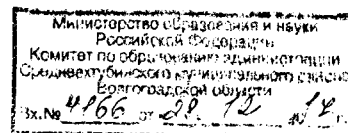 Министерство образования и науки
Российской Федерации
Комитет по образованию администрации
Среднеахтубинского муниципального района
Волгоградской области
Вх.№ 4866 от 28. 12 2017 г.